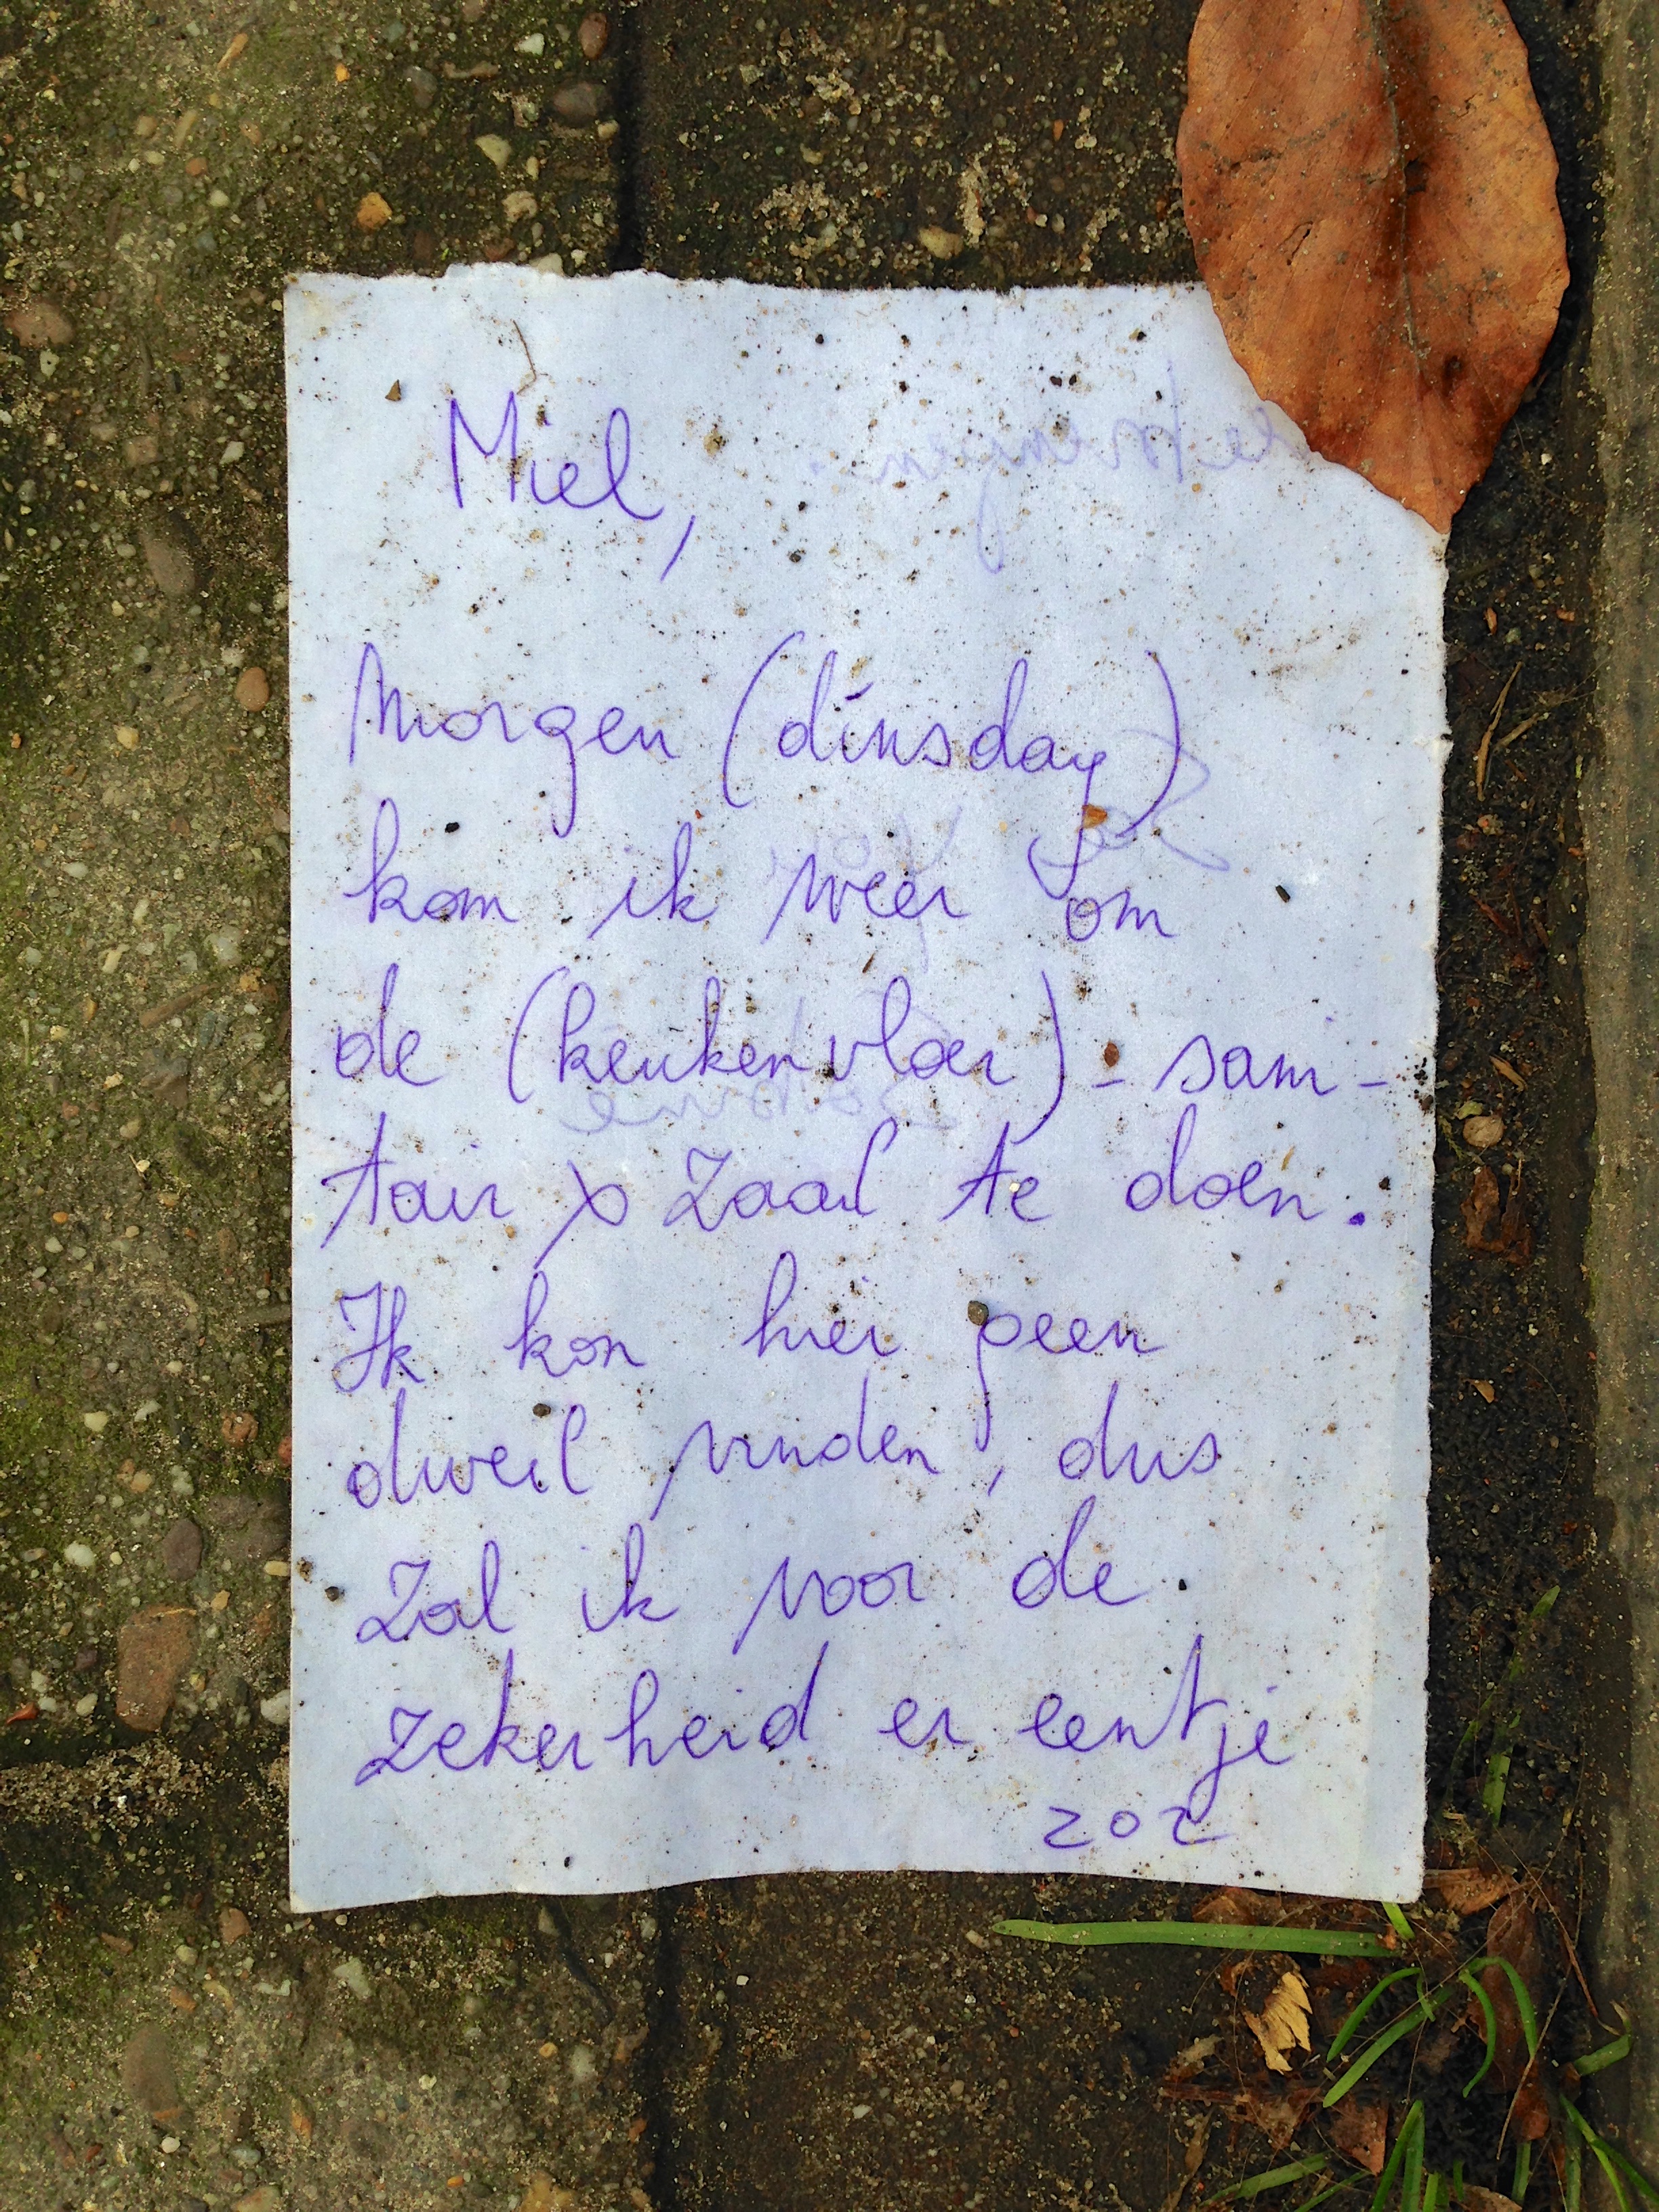 Miel,
Morgen (dinsdag)
kom ik weer om
de (keukenvloer) - sani-
tair & zaal te doen.
Ik kon hier geen
dweil vinden, dus
zal ik voor de
zekerheid er eentje
zoz